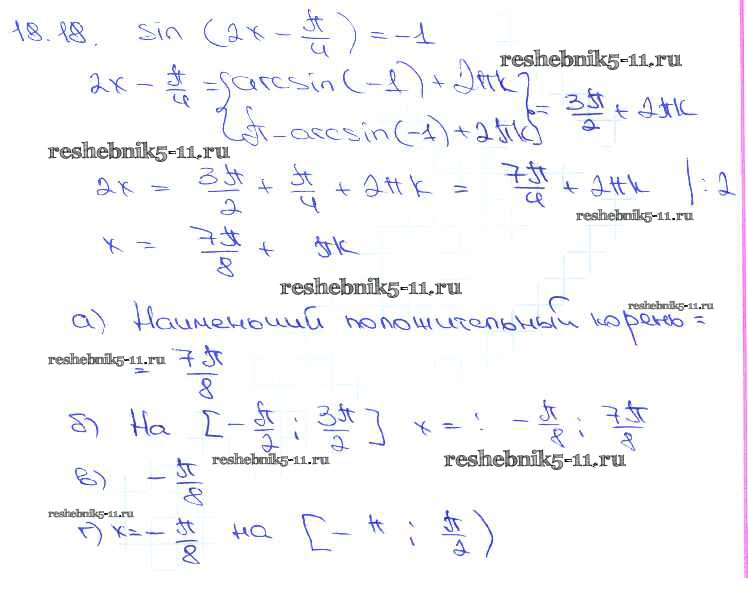 18.18. sin (2x - π/4) = -1
reshebnik5-11.ru
2x - π/4 = { arcsin(-1) + 2πk
{ π - arcsin(-1) + 2πk } = 3π/2 + 2πk
reshebnik5-11.ru
2x = 3π/2 + π/4 + 2πk = 7π/4 + 2πk | : 2
reshebnik5-11.ru
x = 7π/8 + πk
reshebnik5-11.ru
а) Наименьший положительный корень =
reshebnik5-11.ru
reshebnik5-11.ru
= 7π/8
б) На [-π/2 ; 3π/2] x = : -π/8 ; 7π/8
reshebnik5-11.ru
reshebnik5-11.ru
в) -π/8
reshebnik5-11.ru
г) x = -π/8 на [-π ; π/2)